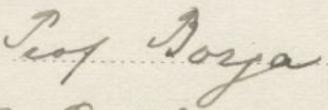 Prof Borja